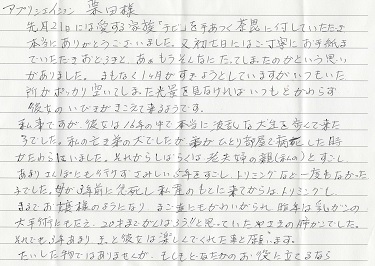 アプリシェイション 栗田様
先月21日には愛する家族「チビ」を手あつく荼毘に付していただき
本当にありがとうございました。又初七日にはご丁寧にお手紙ま
でいただきおどろきと、ああもうそんなにたってしまたのかという思い
がありました。まもなく1ヶ月がすぎようとしていますがいつもいた
所がポッカリ空いてしまった光景を見なければいつもとかわらず
彼女のいびきがきこえて来るようです。
私事ですが、彼女は16年の中で本当に波乱な犬生を歩んで来た
子でした。私の 犬でしたが ひとり部屋で病死した時
かたわらにいました。それからしばらくは老夫婦の親 とすごし
あまりさんぽにも行けずさみしい5年をすごし、トリミングなど一度もなかった
子でした。母が3年前に急死し私達のもとに来てからはトリミングし
まるでお嬢様のようになり まご達にもかわいがられ 昨年は乳がんの
大手術にもたえ、20才までがんばろう!と思っていたやさきの 死でした。
それでも3年あまりきっと彼女は楽しくしてくれた事と願います。
たいした物ではありませんが、もしもどなたかのお役に立てるなら